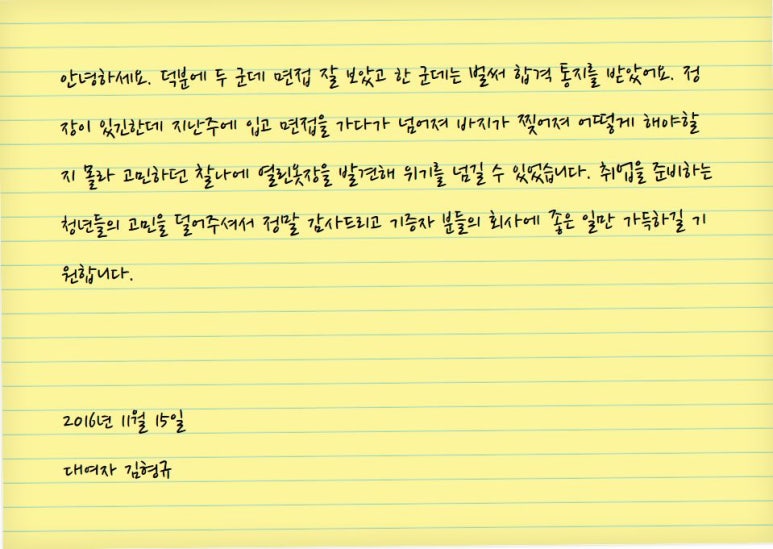 안녕하세요. 덕분에 두 군데 면접 잘 보았고 한 군데는 벌써 합격 통지를 받았어요. 정
장이 있긴한데 지난주에 입고 면접을 가다가 넘어져 바지가 찢어져 어떻게 해야할
지 몰라 고민하던 찰나에 열린옷장을 발견해 위기를 넘길 수 있었습니다. 취업을 준비하는
청년들의 고민을 덜어주셔서 정말 감사드리고 기증자 분들의 회사에 좋은 일만 가득하길 기
원합니다.
2016년 11월 15일
대여자 김형규